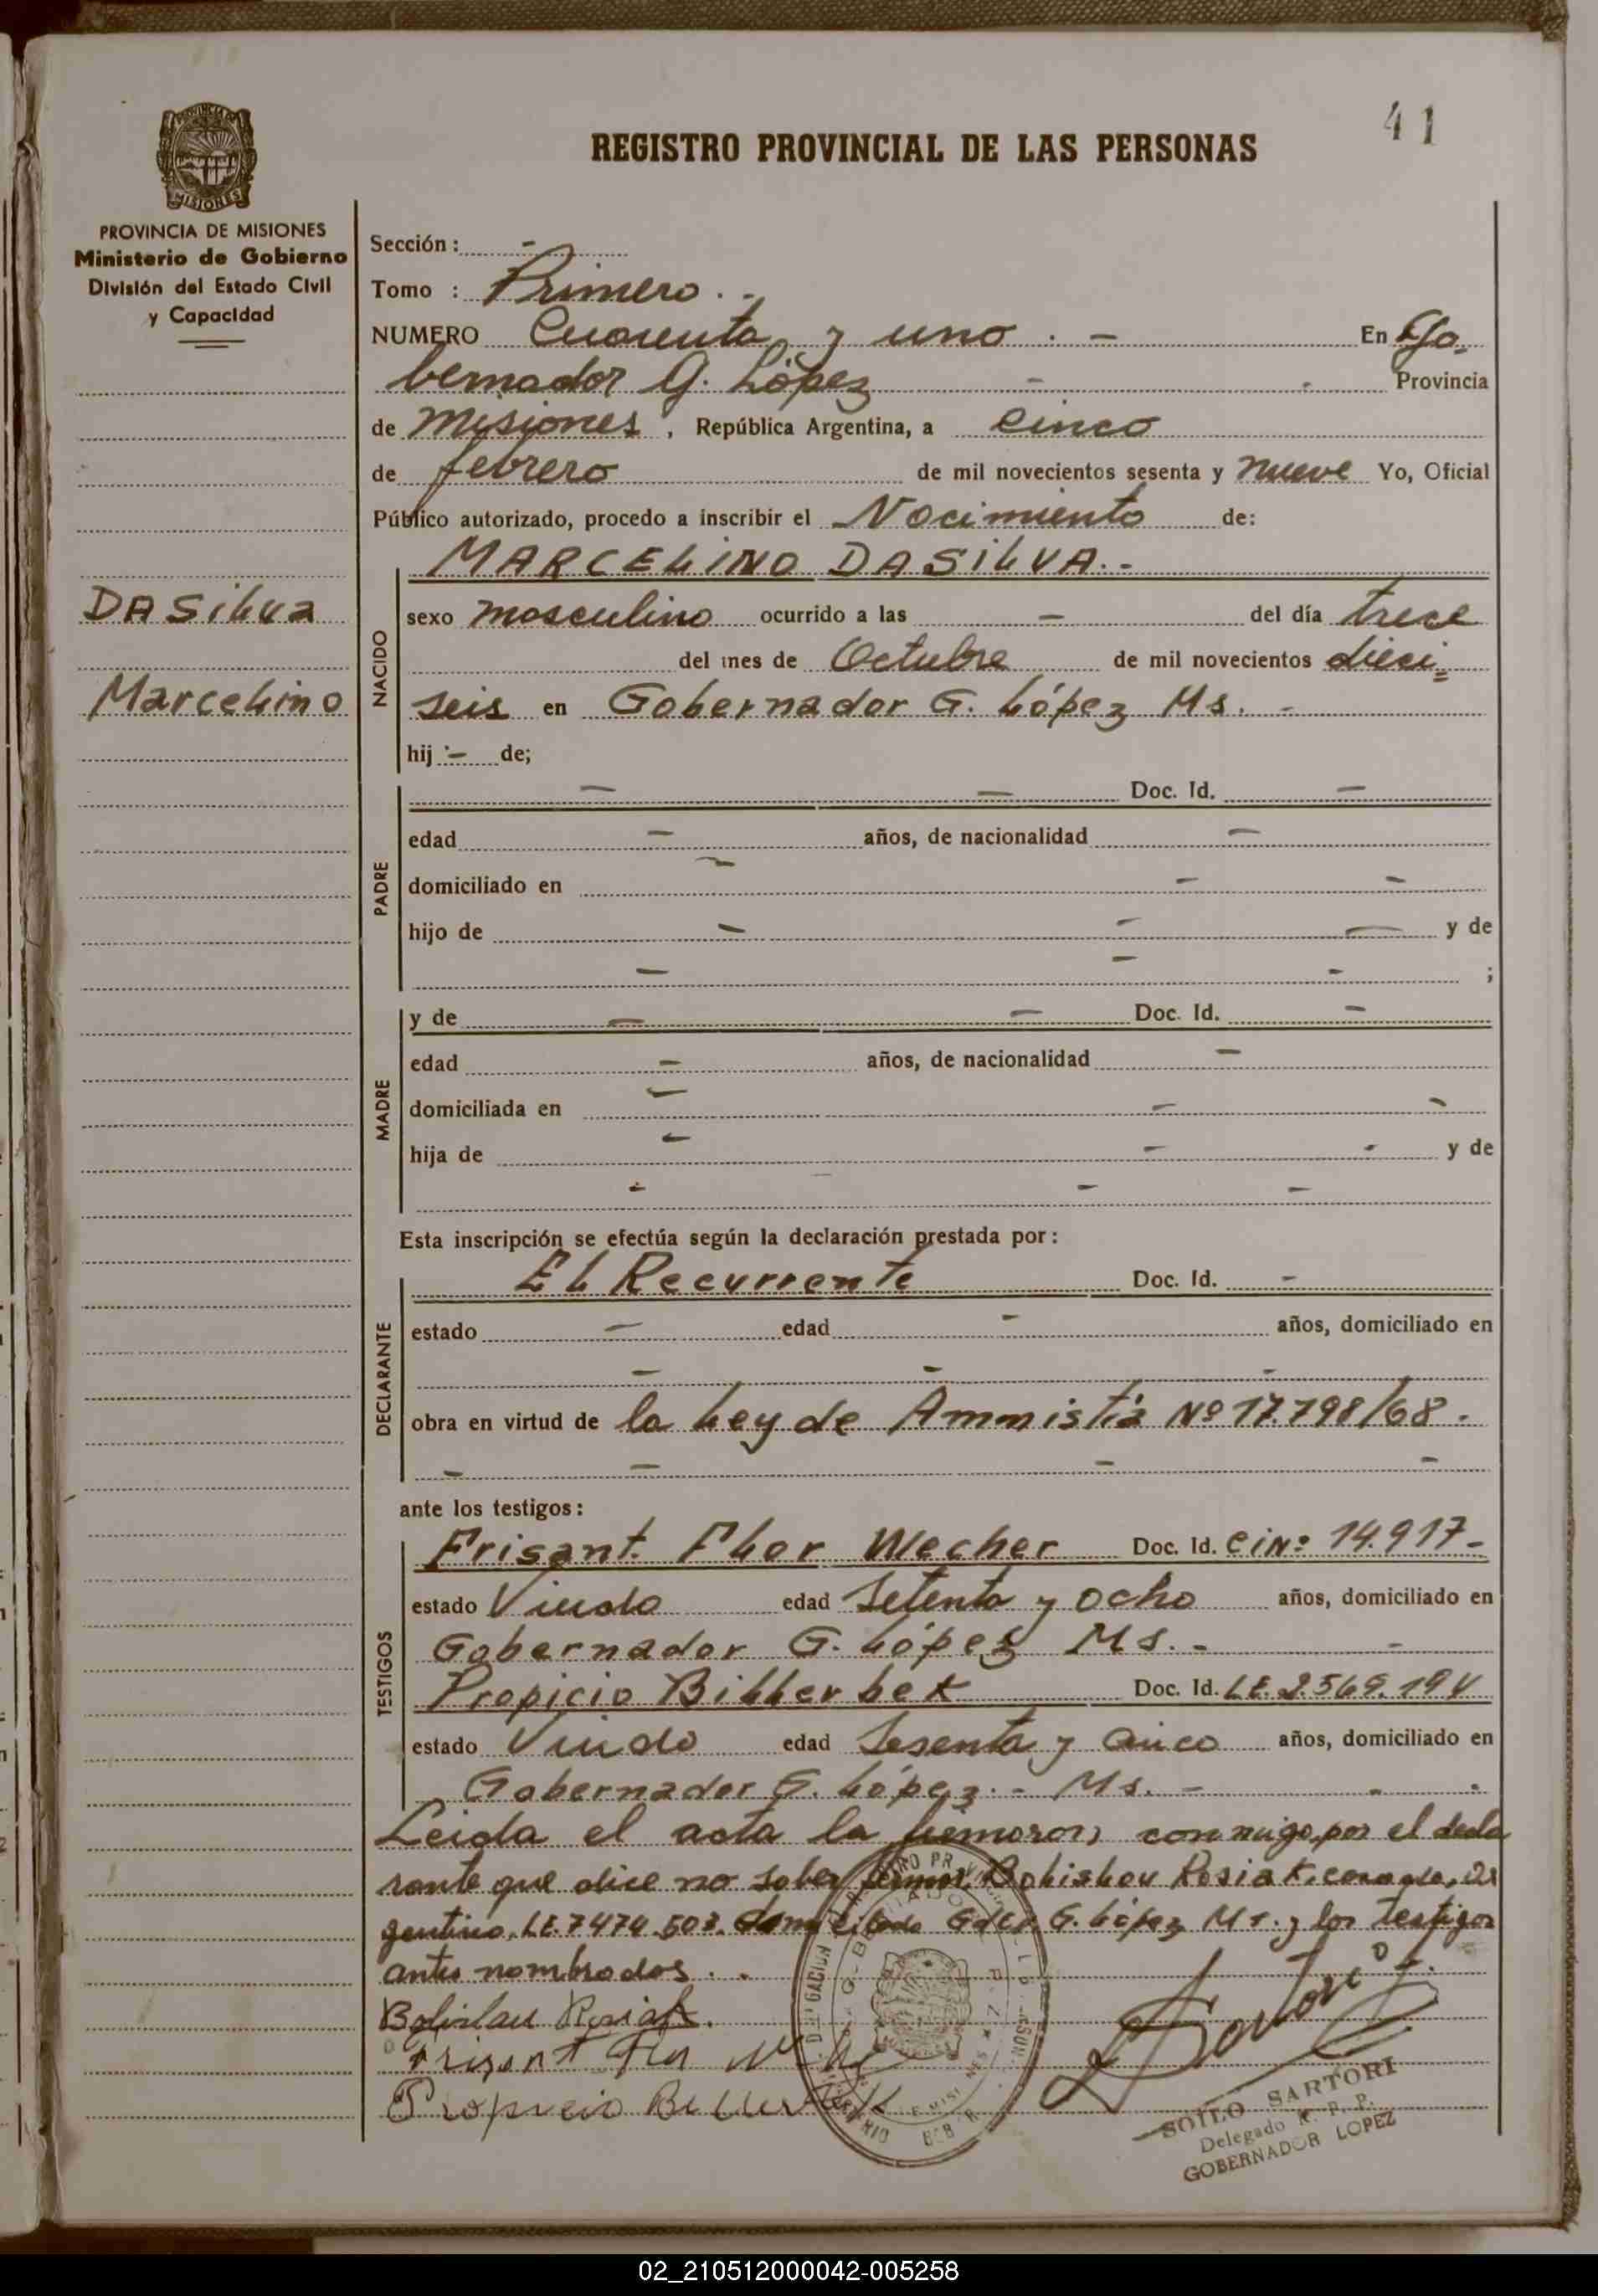 41
REGISTRO PROVINCIAL DE LAS PERSONAS
PROVINCIA DE MISIONES
Ministerio de Gobierno
División del Estado Civil
y Capacidad
Sección : -
Tomo : Primero . -
NUMERO Cuarenta y uno . - En Go-
bernador G. López - . Provincia
de Misiones , República Argentina, a cinco
de febrero de mil novecientos sesenta y nueve Yo, Oficial
Público autorizado, procedo a inscribir el Nacimiento de:
MARCELINO DA SILVA. -
DA Silva
Marcelino
NACIDO
sexo masculino ocurrido a las - del día trece
del mes de Octubre de mil novecientos dieci=
seis en Gobernador G. López Ms. -
hij - de;
PADRE
- - Doc. Id. -
edad - años, de nacionalidad -
domiciliado en - - -
hijo de - - - y de
- - - ;
MADRE
y de - - Doc. Id. -
edad - años, de nacionalidad -
domiciliada en - - -
hija de - - - y de
- - -
Esta inscripción se efectúa según la declaración prestada por :
DECLARANTE
El Recurrente Doc. Id. -
estado - edad - años, domiciliado en
- - -
obra en virtud de la Ley de Ammistía Nº 17.798/68 .
- - - -
ante los testigos :
TESTIGOS
Frisant. Flor Wecher Doc. Id. CiNº 14.917-
estado Viudo edad Setenta y ocho años, domiciliado en
Gobernador G. López Ms. - -
Propicio Billerbek Doc. Id. L.E. 2.569.194
estado Viudo edad Sesenta y cinco años, domiciliado en
Gobernador G. López. - Ms. - - -
Leida el acta la firmaron conmigo, por el decla
rante que dice no saber firmar Bolislou Rosiak, casado, ar
gentino, L.E. 7474.503. domiciliado Gdor. G. López Ms. y los testigos
antes nombrados . .
Bolislau Rosiak.
Frisant Flor
Propicio Billerbek
SOILO SARTORI
Delegado R. P. P.
GOBERNADOR LOPEZ
02_210512000042-005258